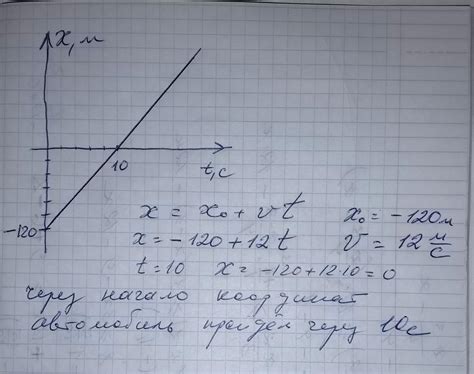 x, м
10
t, с
-120
x = x₀ + vt     x₀ = -120м
x = -120 + 12t     v = 12 м/с
t = 10     x = -120 + 12·10 = 0
через начало координат
автомобиль пройдёт через 10с